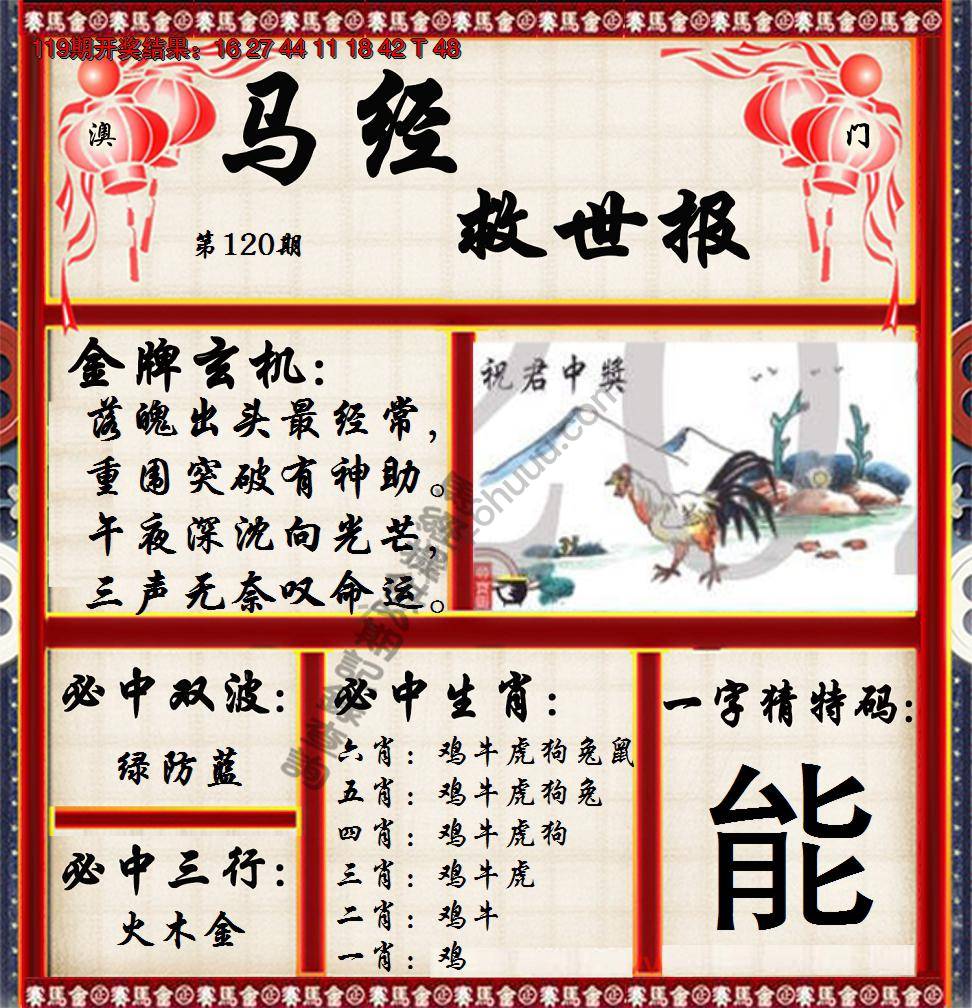 119期开奖结果：16 27 44 11 18 42 T 48
澳 门
马经
救世报
第120期
金牌玄机：
落魄出头最经常，
重围突破有神助。
午夜深沈向光芒，
三声无奈叹命运。
祝君中獎
必中双波：
绿防蓝
必中三行：
火木金
必中生肖：
六肖：鸡牛虎狗兔鼠
五肖：鸡牛虎狗兔
四肖：鸡牛虎狗
三肖：鸡牛虎
二肖：鸡牛
一肖：鸡
一字猜特码：
能